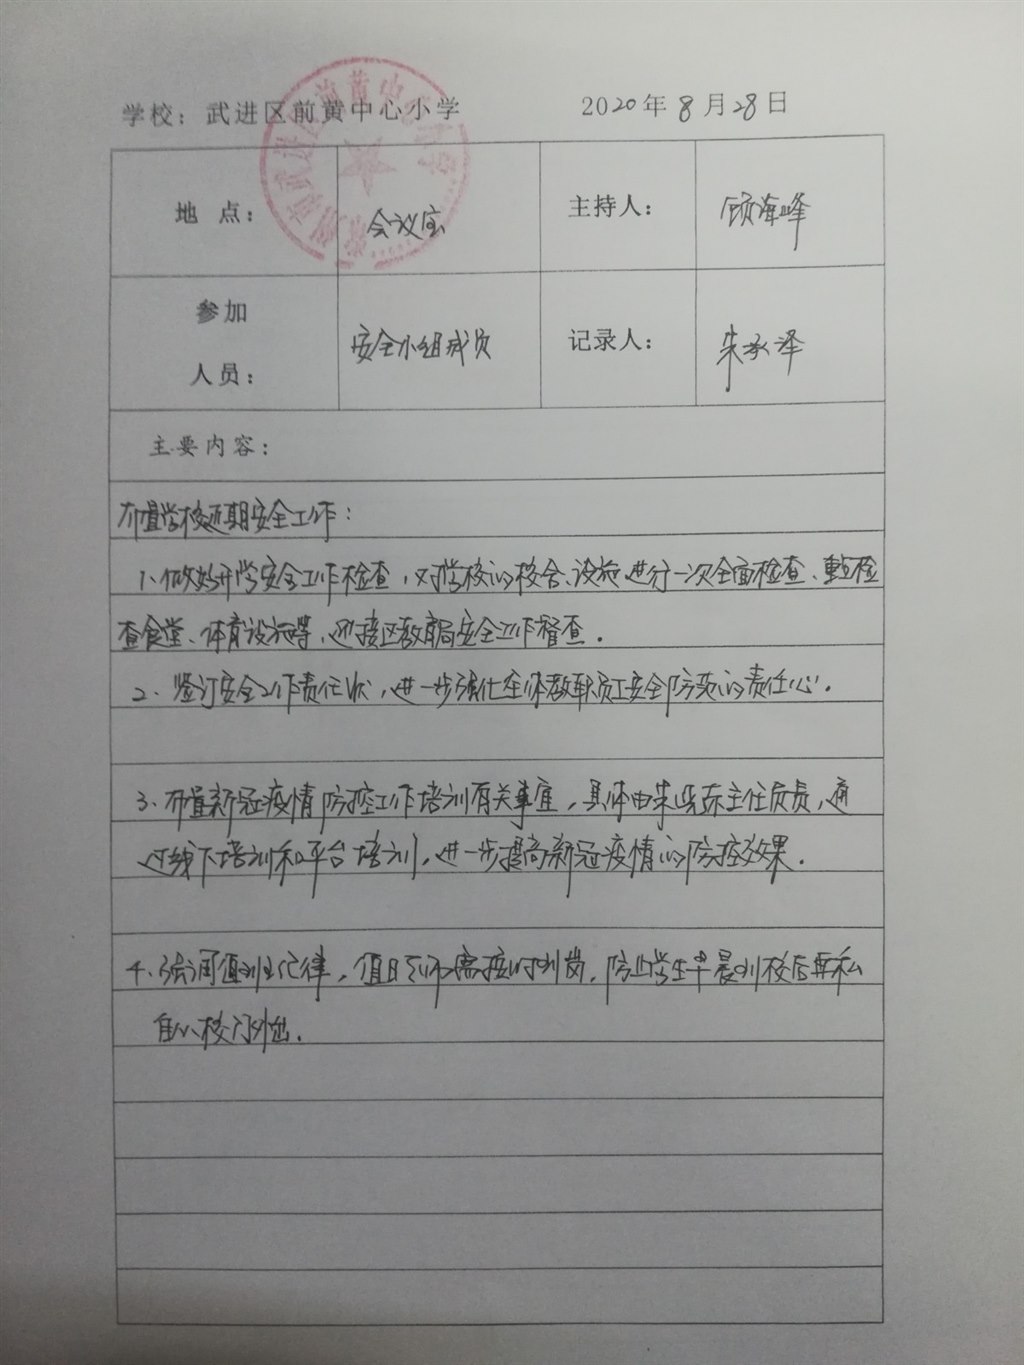 学校：武进区前黄中心小学 2020年8月28日
地 点： 会议室 主持人： 顾海峰
参加
人员： 安全小组成员 记录人： 朱承泽
主要内容：
布置学校近期安全工作：
1、做好开学安全工作检查，对学校的校舍、设施进行一次全面检查、重点检
查食堂、体育设施等，迎接区教育局安全工作督查．
2、签订安全工作责任状，进一步强化全体教职员工安全防范的责任心．
3、布置新冠疫情防控工作培训有关事宜，具体由朱 东主任负责，通
过线下培训和平台培训，进一步提高新冠疫情的防控效果．
4、强调值班纪律，值日老师需按时到岗，防止学生早晨到校后再私
自从校门外出．